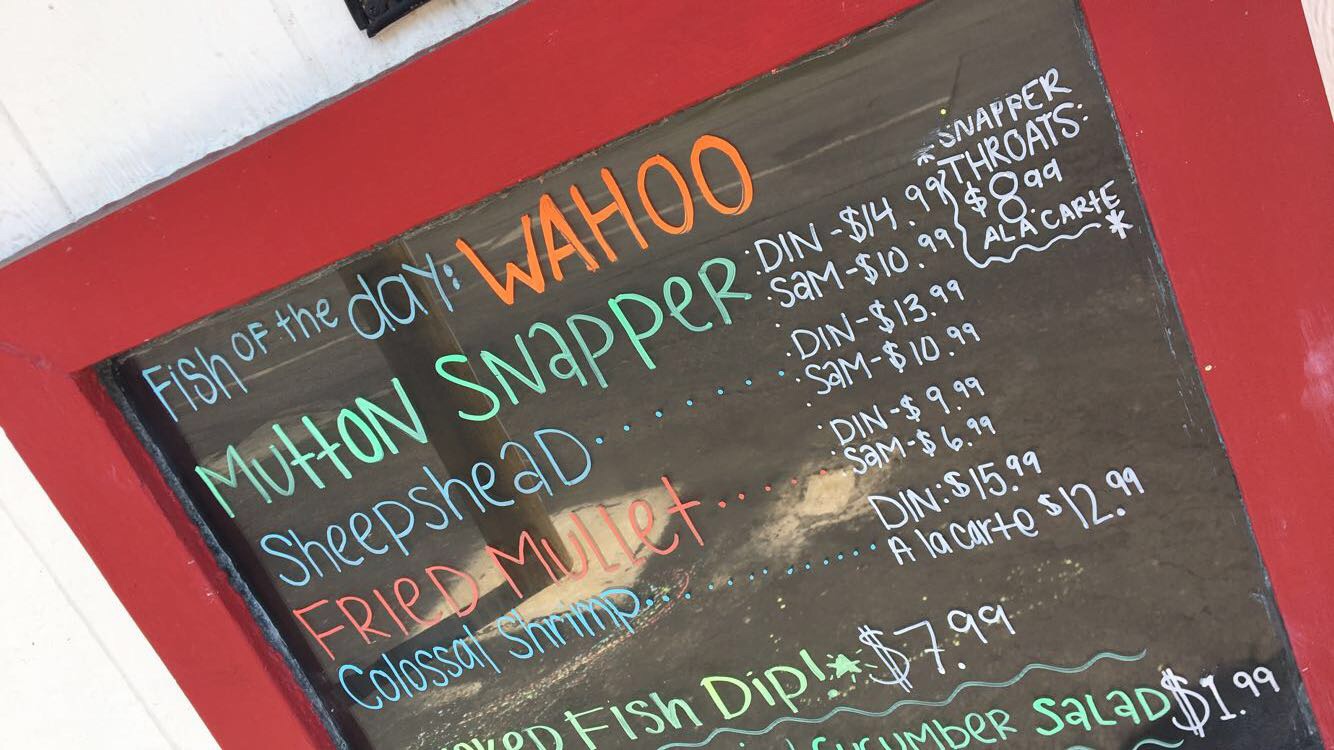 Fish OF the day: WAHOO
MuttON SNappeR :DIN - $14.99
Sam - $10.99
*SNAPPER
THROATS:
$8.99
ALA CARTE*
Sheepshead....... DIN - $13.99
Sam - $10.99
FRIED Mullet...... DIN - $9.99
Sam - $6.99
Colossal Shrimp............ DIN: $15.99
A la carte $12.99
Fish Dip!* $7.99
CucumbeR SaLaD $1.99